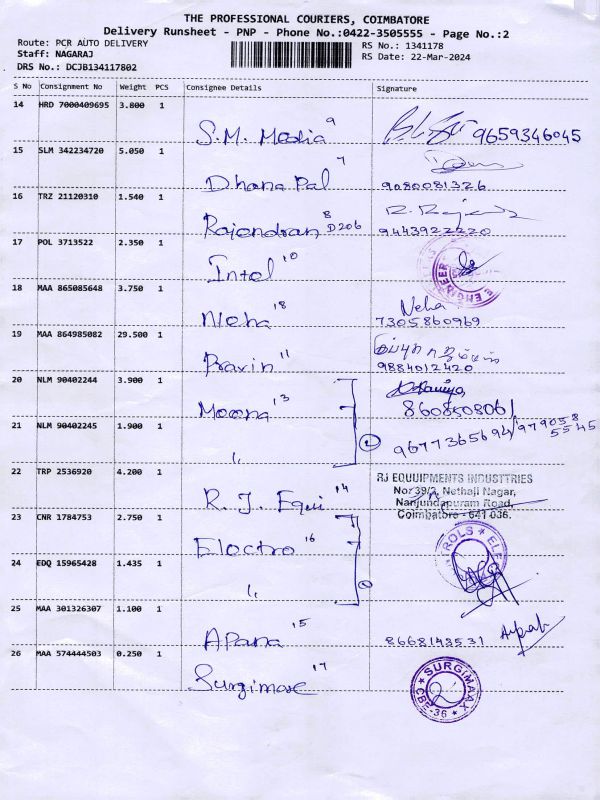 THE PROFESSIONAL COURIERS, COIMBATORE
Delivery Runsheet - PNP - Phone No.:0422-3505555 - Page No.:2
Route: PCR AUTO DELIVERY
Staff: NAGARAJ
DRS No.: DCJB134117802
RS No.: 1341178
RS Date: 22-Mar-2024
S No Consignment No Weight PCS Consignee Details Signature
14 HRD 7000409695 3.800 1 S.M. Media 9 9659346045
15 SLM 342234720 5.050 1 Dhana Pal 7 9080081326
16 TRZ 21120310 1.540 1 Rajendran 8 D206 9443922220
17 POL 3713522 2.350 1 Intel 10
18 MAA 865085648 3.750 1 Neha 18 Neha 7305860969
19 MAA 864985082 29.500 1 Pravin 11 9884012420
20 NLM 90402244 3.900 1 Moona 13
21 NLM 90402245 1.900 1 "
22 TRP 2536920 4.200 1 R. J. Equi 14 RJ EQUUIPMENTS INDUSTTRIES
Nanjundapuram Road,
Coimbatore - 641 036.
23 CNR 1784753 2.750 1 Electro 16
24 EDQ 15965428 1.435 1 "
25 MAA 301326307 1.100 1 Apana 15 8668143531
26 MAA 574444503 0.250 1 Surgimax 17 SURGIMAAX CBE-36